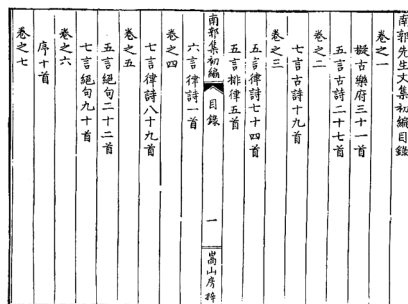 南郭先生文集初編目錄
卷之一
擬古樂府三十一首
五言古詩二十七首
卷之二
七言古詩十九首
卷之三
五言律詩七十四首
五言排律五首
南郭集初編
目錄
一
嵩山房梓
六言律詩一首
卷之四
七言律詩八十九首
卷之五
五言絕句二十二首
七言絕句九十首
卷之六
序十首
卷之七